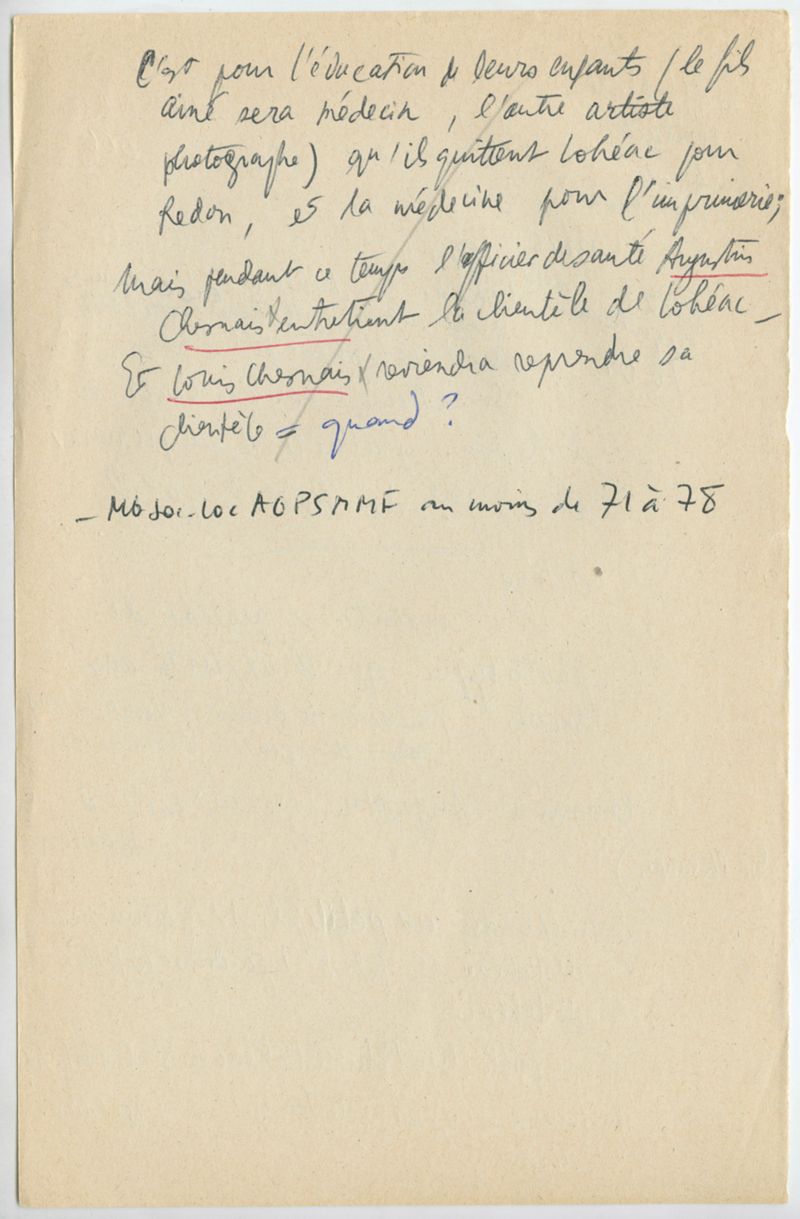 C'est pour l'éducation de leurs enfants (le fils
ainé sera médecin, l'autre artiste
photographe) qu'ils quittent Lohéac pour
Redon, et la médecine pour l'imprimerie;
Mais pendant ce temps l'officier de santé Augustin
Chesnais entretient la clientèle de Lohéac_
Et Louis Chesnais reviendra reprendre sa
clientèle = quand ?
_ Mb Soc. Loc AGPSMMF au moins de 71 à 78